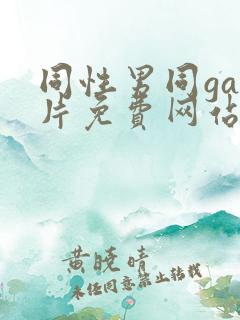 同性男同ga
片免费网站
黄晓晴
未任同意禁止转载